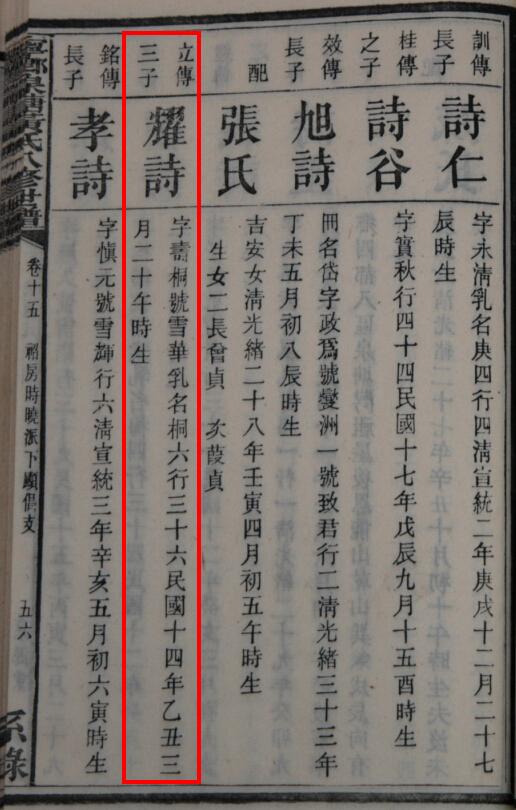 訓傳
長子
詩仁
字永淸乳名庚四行四淸宣統二年庚戌十二月二十七
辰時生
桂傳
之子
詩谷
字賞秋行四十四民國十七年戊辰九月十五酉時生
效傳
長子
旭詩
冊名岱字政爲號燮洲一號致君行二淸光緒三十三年
丁未五月初八辰時生
配
張氏
吉安女淸光緒二十八年壬寅四月初五午時生
生女二長曾貞 次葭貞
立傳
三子
耀詩
字壽桐號雪華乳名桐六行三十六民國十四年乙丑三
月二十午時生
銘傳
長子
孝詩
字愼元號雪輝行六淸宣統三年辛亥五月初六寅時生
氏八修世譜
卷十五
房時曉派下顯倡支
五六
系錄